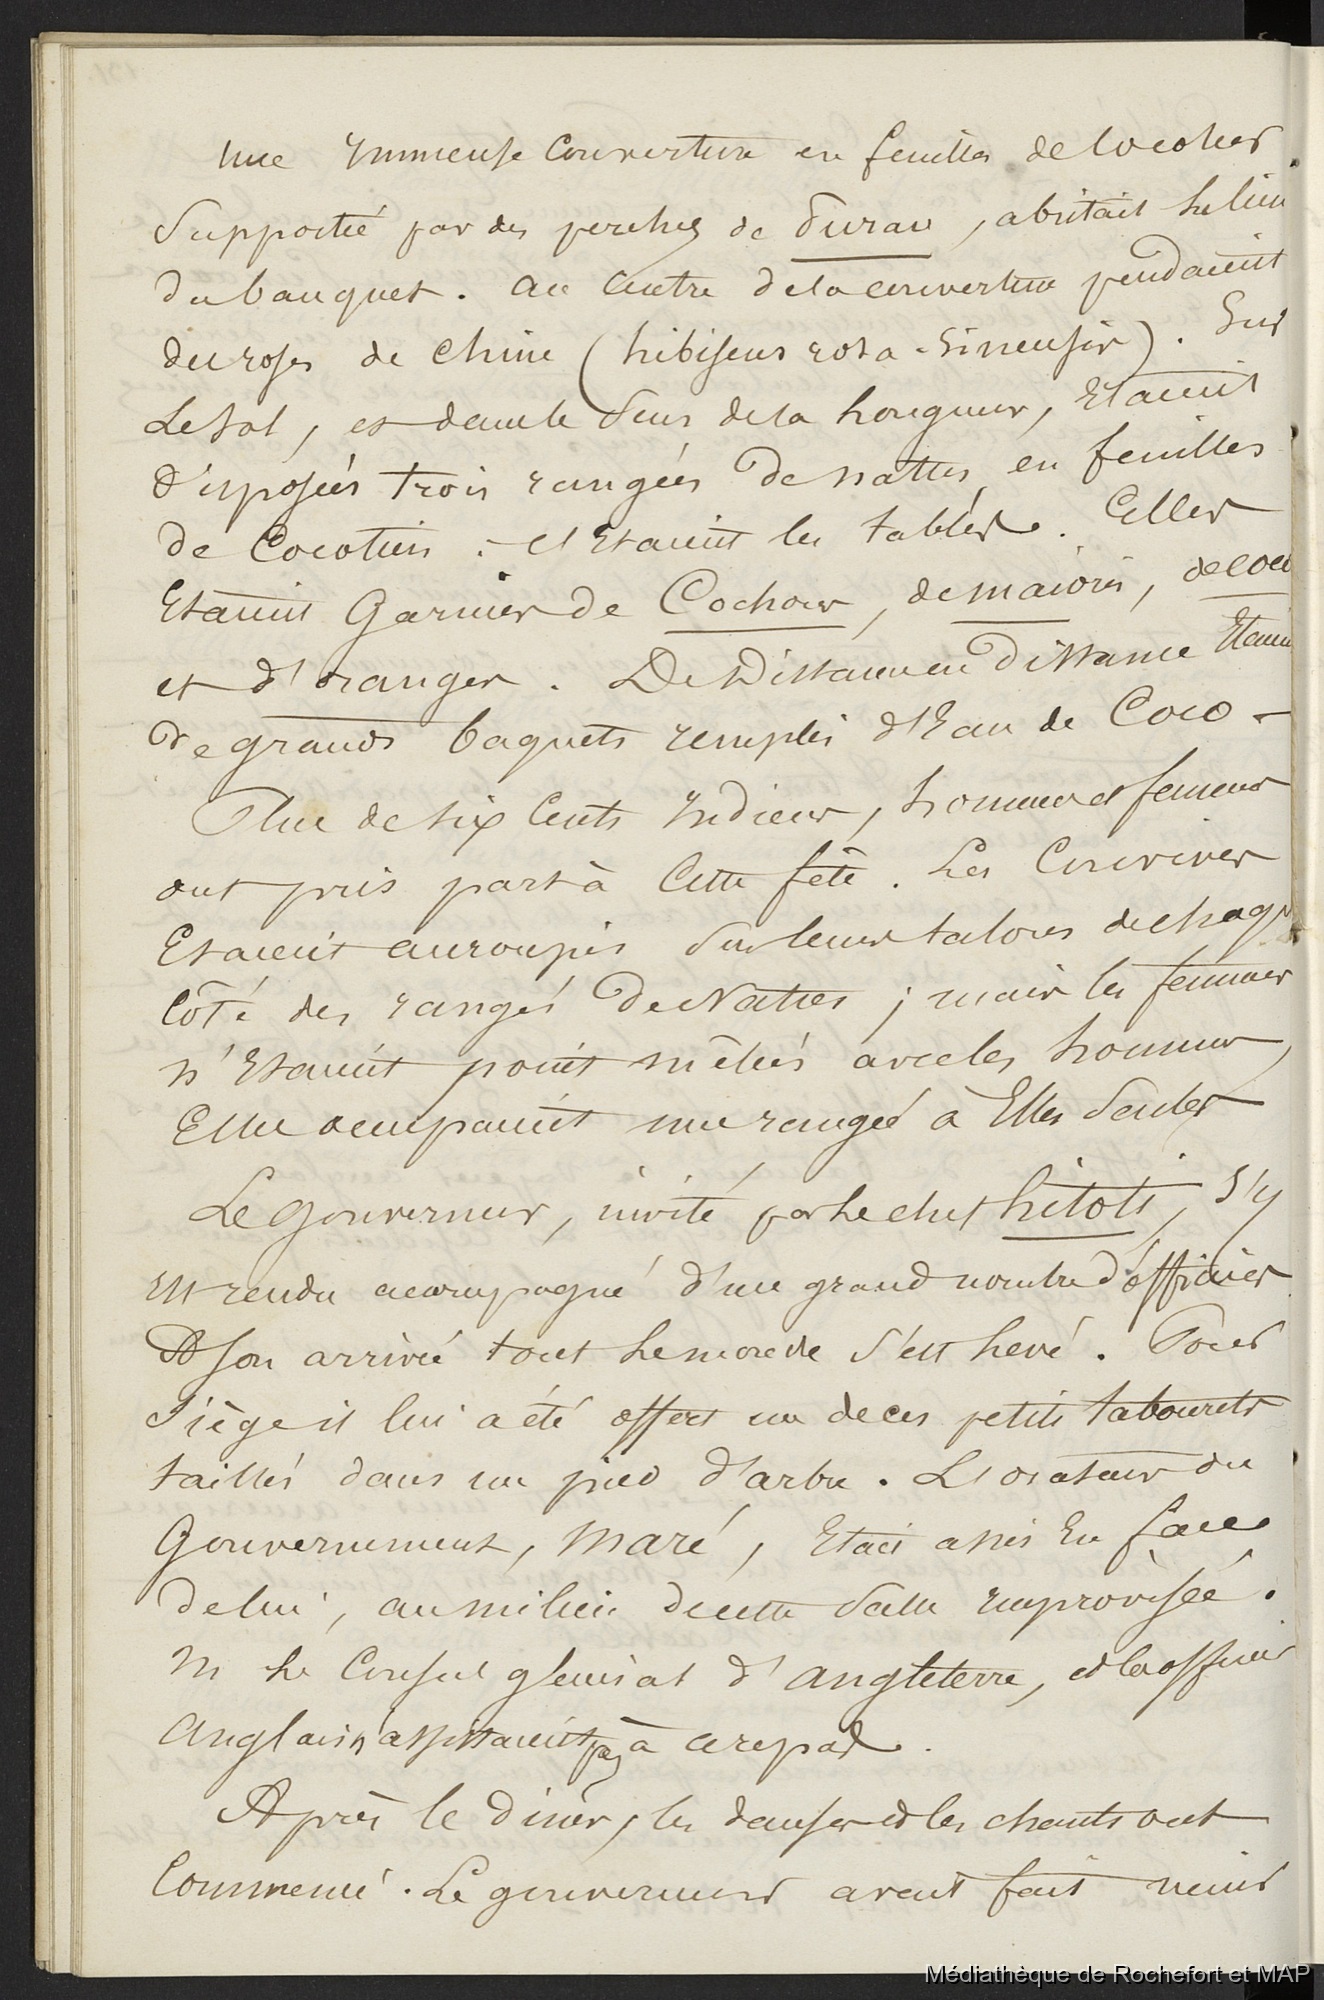 une immense couverture en feuilles de cocotier
supportée par des perches de burau, abritait le lieu
du banquet. au centre de la couverture pendaient
des roses de chine (hibiscus rosa-sinensis). Sur
le sol, et dans le sens de la longueur, étaient
disposées trois rangées de nattes en feuilles
de cocotiers : c'étaient les tables. Celles
étaient garnies de Cochons, de maioris, de coco
et d'oranges. De distance en distance étaient
de grands baquets remplis d'Eau de Coco -
Plus de six cents indiens, hommes et femmes
ont pris part à cette fête. Les convives
Etaient accroupis sur leurs talons de chaque
côté des rangés de Nattes ; mais les femmes
n'étaient point mêlées avec les hommes,
Elles occupaient une rangée à Elles seules
Le gouverneur, invité par le chef hitoti, s'y
est rendu accompagné d'un grand nombre d'officiers
A son arrivée tout le monde s'est levé. Pour
siège il lui a été offert un de ces petits tabourets
taillés dans un pied d'arbre. L'orateur du
Gouvernement, Maré, était assis en face
de lui, au milieu de cette salle improvisée.
M le Consul général d'angleterre, et les officiers
anglais n'assistaient pas à ce repas.
Après le diner, les danses et les chants ont
commencé. Le gouverneur avait fait venir
Médiathèque de Rochefort et MAP